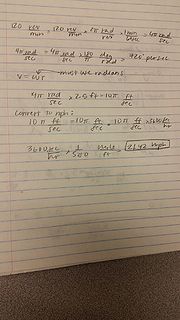 120 rev/min = 120 rev/min × 2π rad/rev × 1 min/60 sec = 4π rad/sec
4π rad/sec = 4π rad/sec × 180/π deg/rad = 720° per sec
v = ωr must use radians
4π rad/sec × 2.5 ft = 10π ft/sec
Convert to mph:
10π ft/sec = 10π ft/sec
3600 sec/hr × 1/5280 mile/ft = 21.42 mph